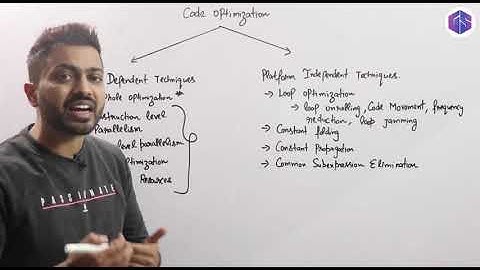 Code Optimization
Dependent Techniques
Platform Independent Techniques.
hole Optimization *
→ Loop Optimization
→ loop unrolling, Code Movement, frequency
reduction, loop jamming
struction level
Parallelism
level parallelism
→ Constant folding
→ Constant Propagation
→ Common Subexpression Elimination
timization
Resources
PASSIONATE